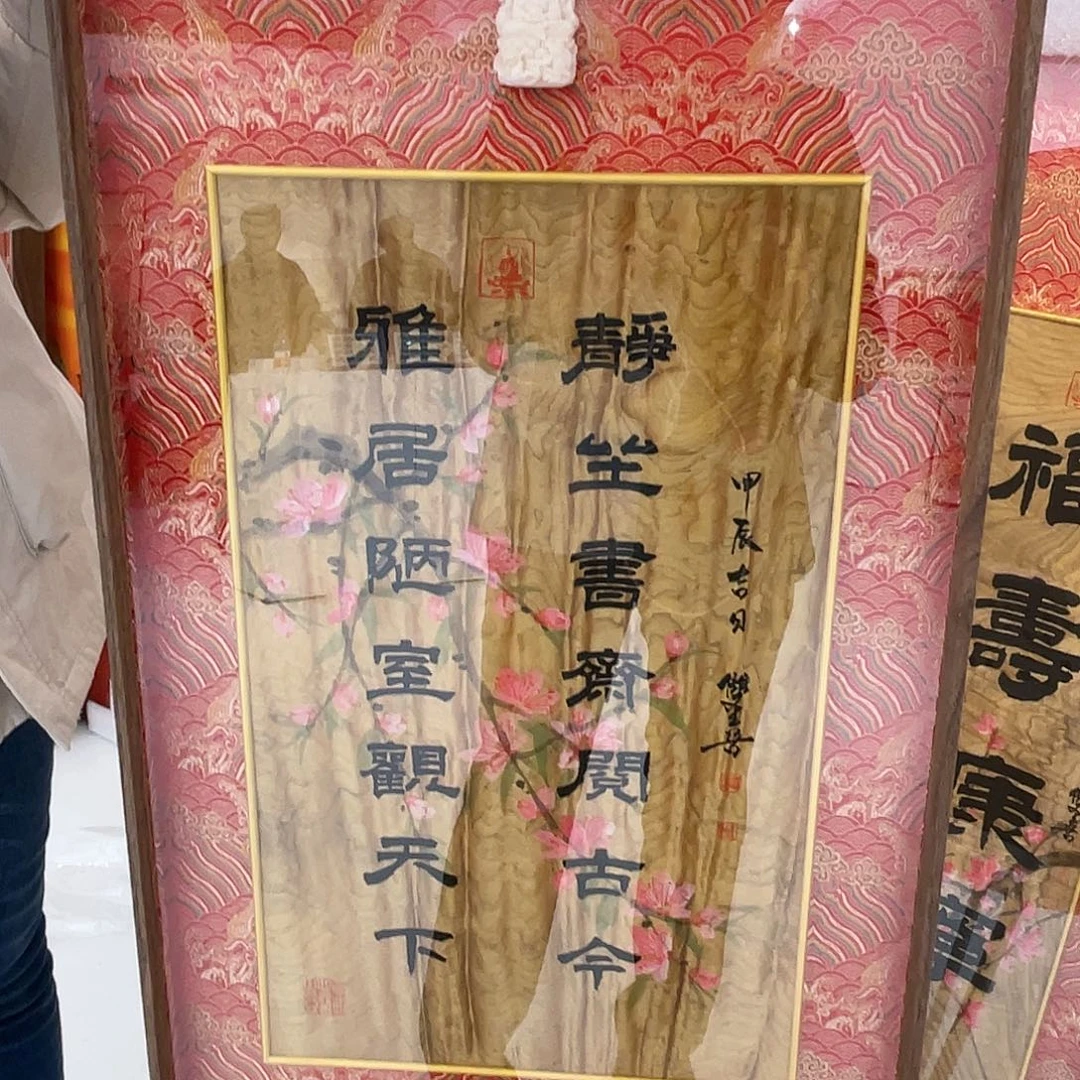 靜坐書齋閱古今
雅居陋室觀天下
甲辰吉日
福壽康寧